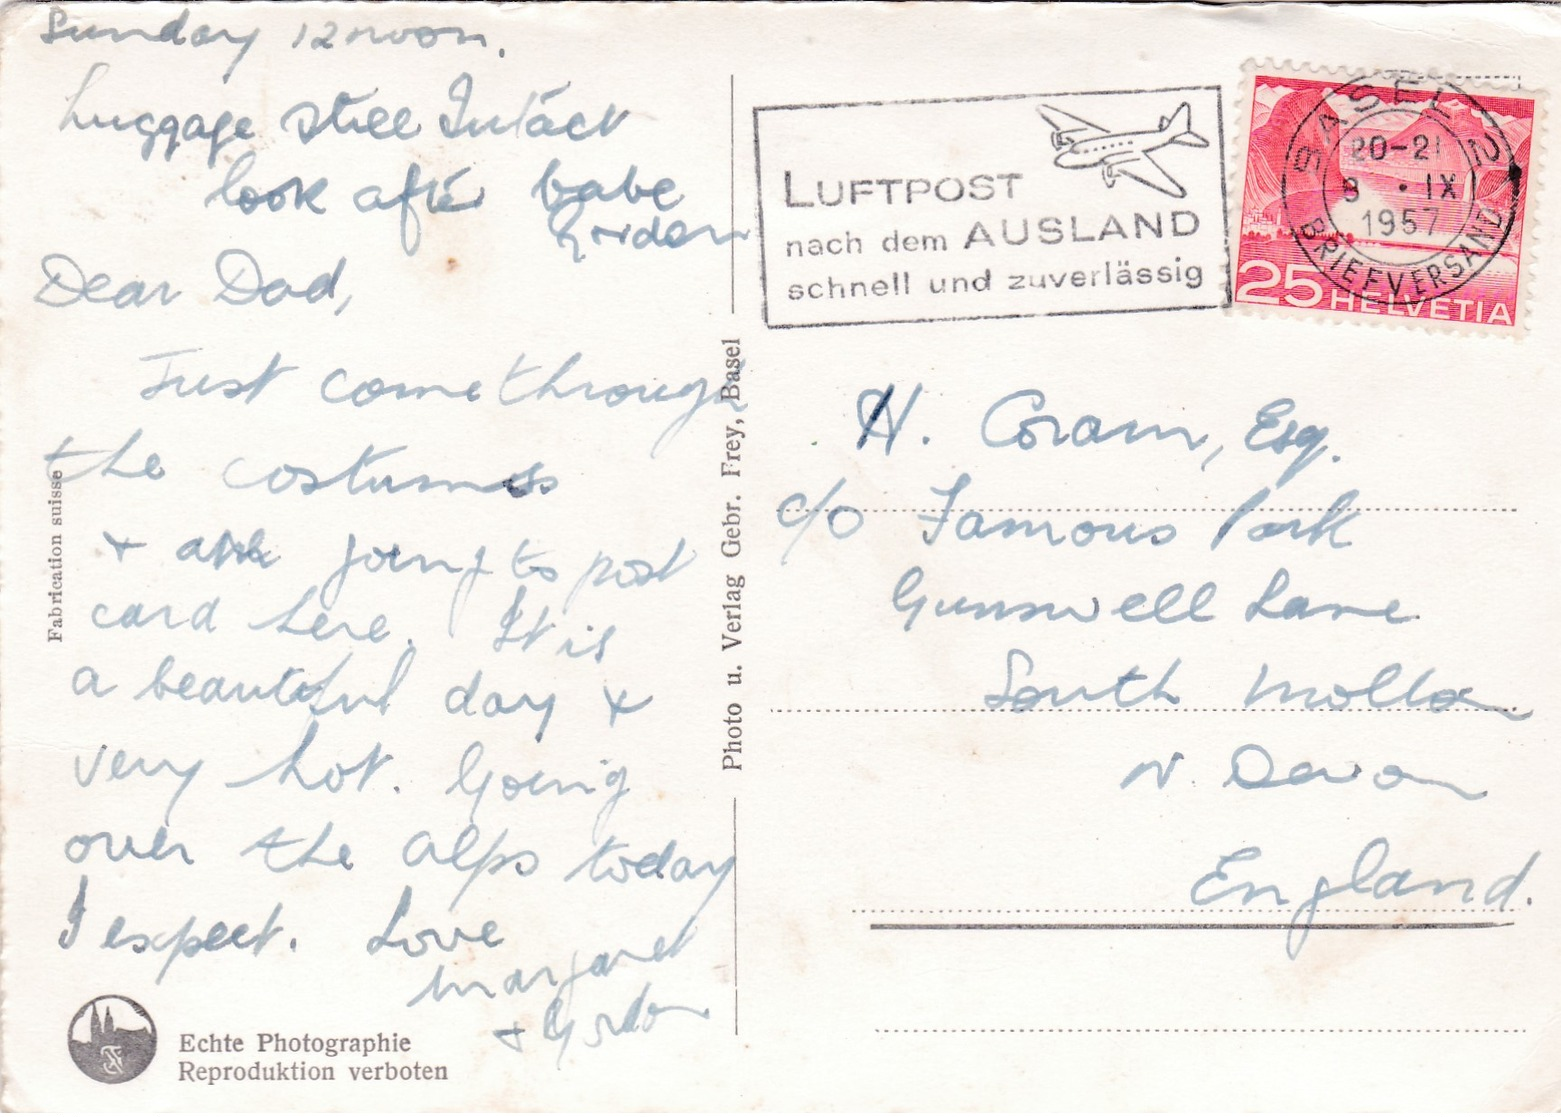 Sunday 12 noon.
Luggage still Intact
look after babe
Gordon
Dear Dad,
Just come through
the costumes
+ are going to post
card here. It is
a beautiful day +
very hot. Going
over the alps today
I expect. Love
Margaret
+ Gordon
Fabrication suisse
Echte Photographie
Reproduktion verboten
Photo u. Verlag Gebr. Frey, Basel
LUFTPOST
nach dem AUSLAND
schnell und zuverlässig
BASEL 2
20-21
IX
1957
BRIEFVERSAND
25 HELVETIA
H. Coram, Esq.
c/o Famous Park
Gunswell Lane
South Molton
N. Devon
England.